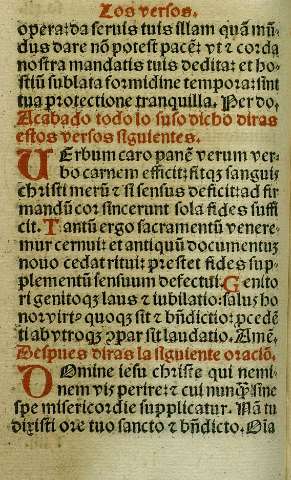 Los versos.
opera: da seruis tuis illam quã mũ
dus dare nõ potest pacẽ: vt & corda
nostra mandatis tuis dedita: et ho
stiũ sublata formidine tempora: sint
tua protectione tranquilla. Per do.
Acabado todo lo suso dicho diras
estos versos siguientes.
VErbum caro panẽ verum ver
bo carnem efficit: fitqz sanguis
christi merũ & si sensus deficit: ad fir
mandũ cor sincerum sola fides suffi
cit. Tantũ ergo sacramentũ venere
mur cernui: et antiquũ documentuz
nouo cedat ritui: prestet fides sup
plementũ sensuum defectui. Genito
ri genitoqz laus & iubilatio: salus ho
nor virtꝰ quoqz sit & bñdictio: pcedẽ
ti ab vtroqz ꝯpar sit laudatio. Amẽ.
Despues diras la siguiente oraciõ.
DOmine iesu christe qui nemi
nem vis perire: & cui nunqz̃ sine
spe misericordie supplicatur. Nã tu
dixisti ore tuo sancto & bñdicto. Oĩa